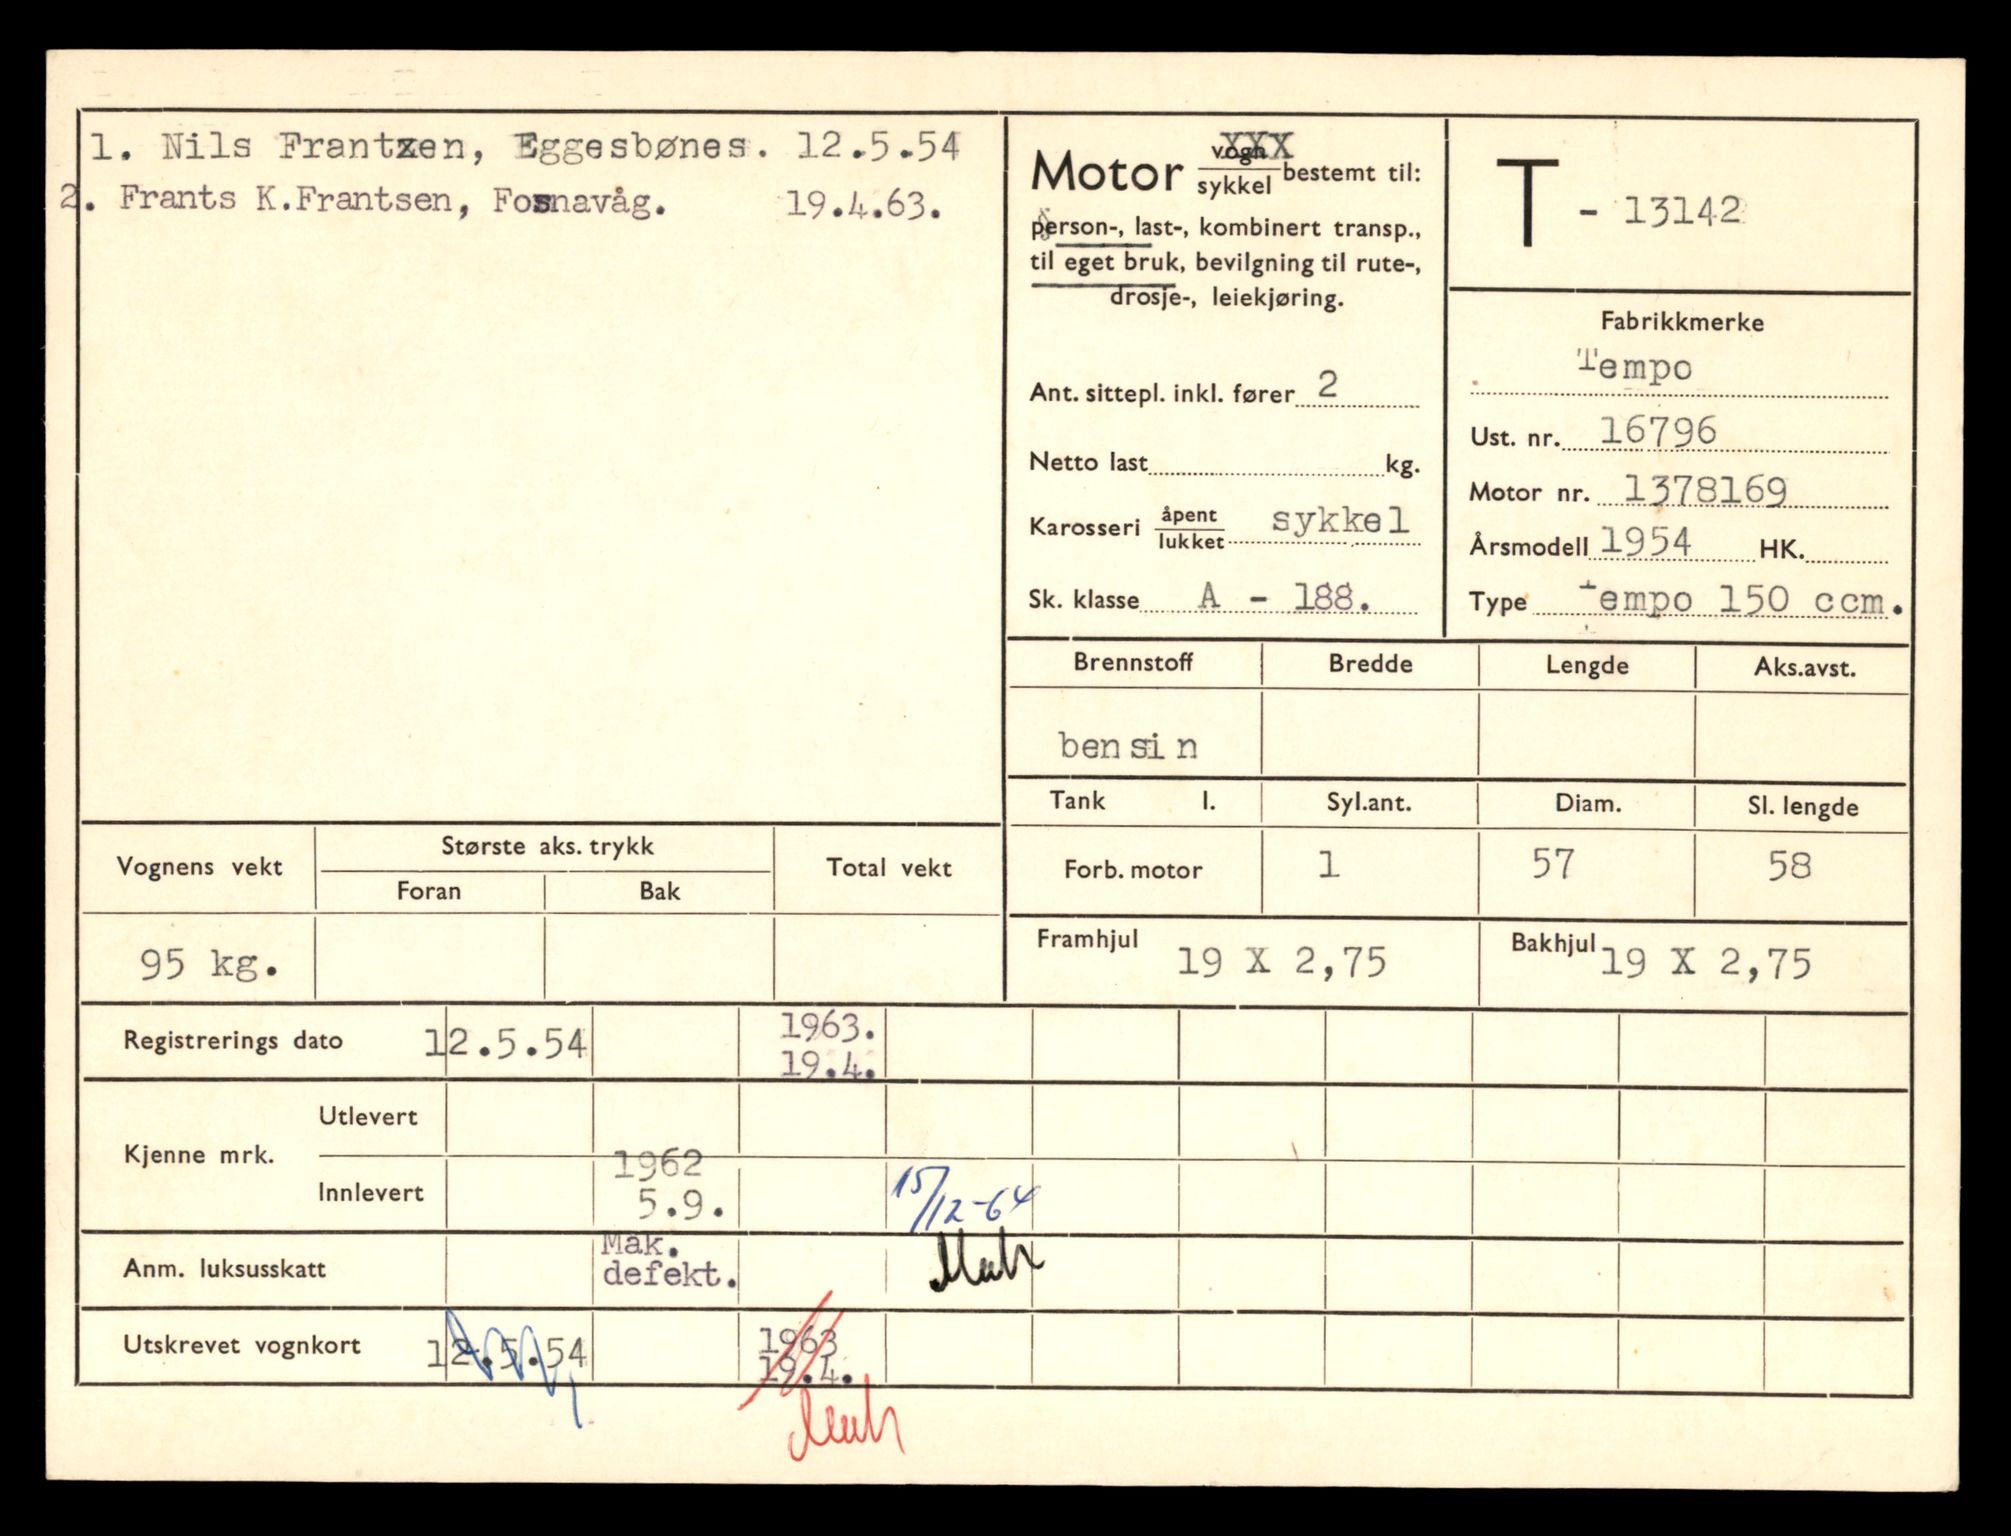 1. Nils Frantzen, Eggesbønes. 12.5.54
2. Frants K.Frantsen, Fosnavåg. 19.4.63.
Motor vogn XXX / sykkel bestemt til:
person-, last-, kombinert transp.,
til eget bruk, bevilgning til rute-,
drosje-, leiekjøring.
Ant. sittepl. inkl. fører 2
Netto last kg.
Karosseri åpent / lukket sykkel
Sk. klasse A - 188.
T - 13142
Fabrikkmerke
Tempo
Ust. nr. 16796
Motor nr. 1378169
Årsmodell 1954 HK.
Type Tempo 150 ccm.
Brennstoff Bredde Lengde Aks.avst.
bensin
Tank l. Syl.ant. Diam. Sl. lengde
Forb. motor 1 57 58
Framhjul 19 X 2,75 Bakhjul 19 X 2,75
Vognens vekt Største aks. trykk Total vekt
Foran Bak
95 kg.
Registrerings dato 12.5.54 1963.
19.4.
Kjenne mrk. Utlevert
Innlevert 1962
5.9. 15/12-64
Anm. luksusskatt Mak.
defekt.
Utskrevet vognkort 12.5.54 1963
19.4.